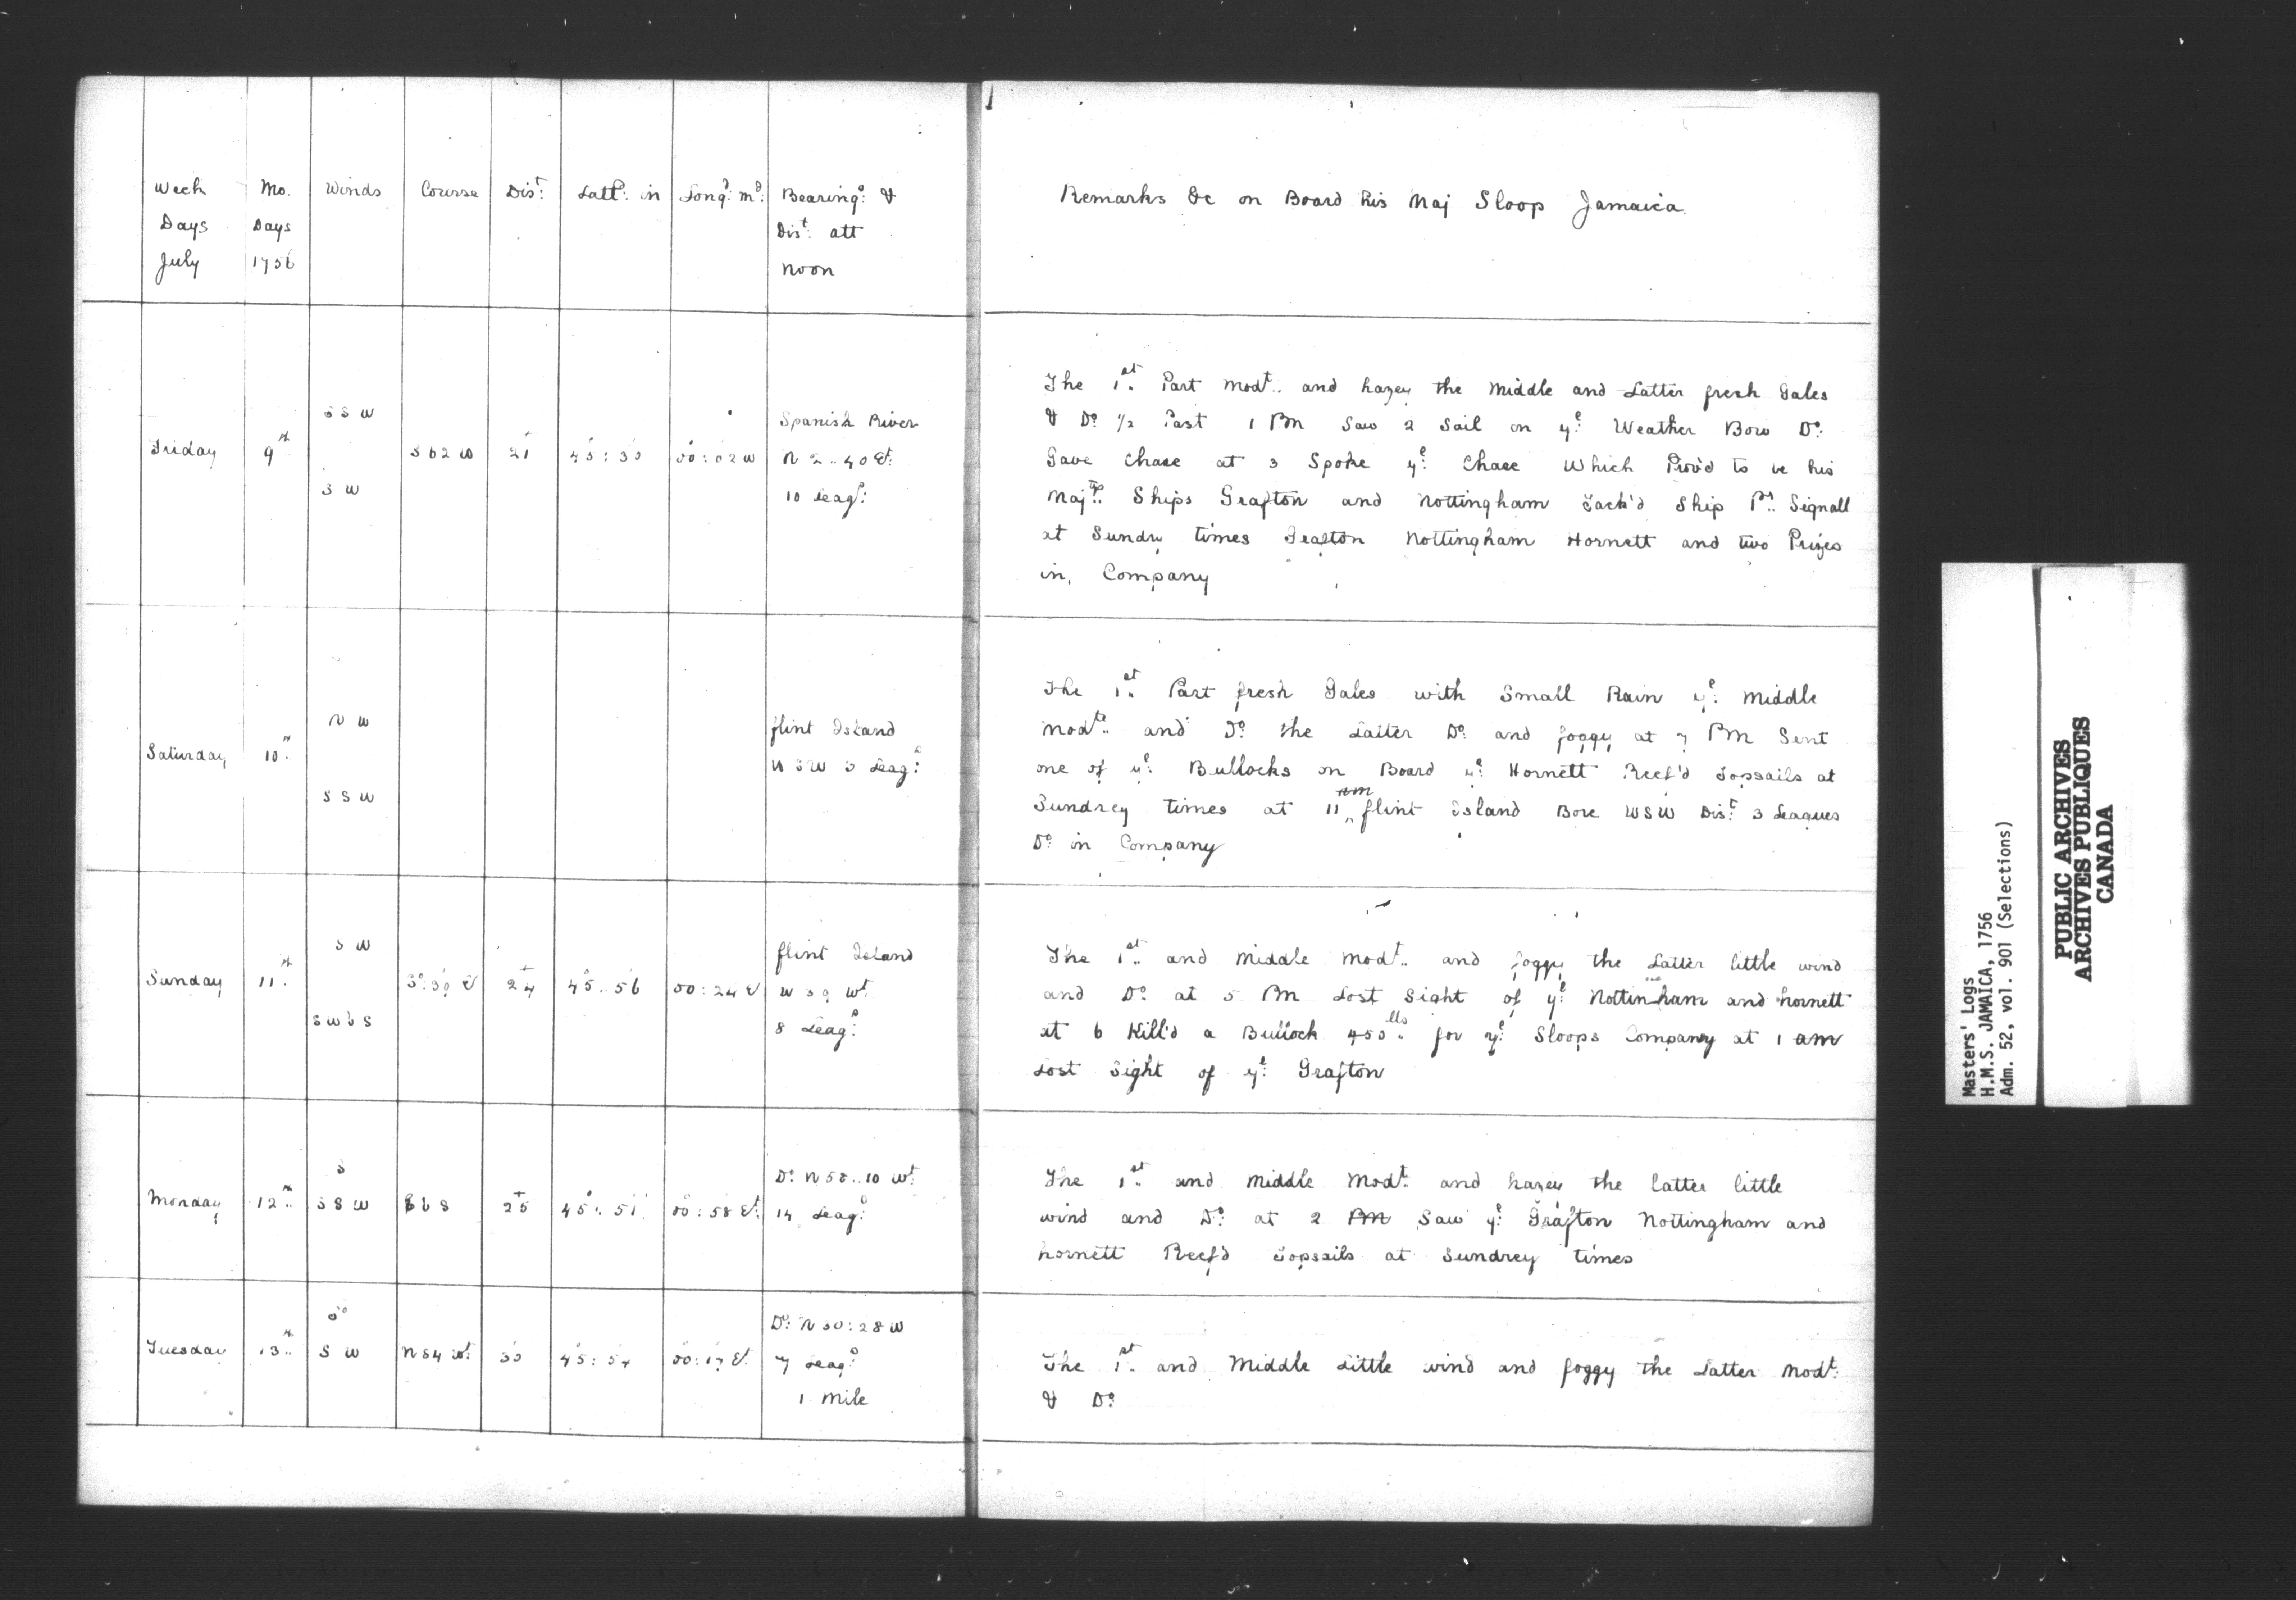 Week Days July
Mo. Days 1756
Winds
Course
Dist:
Latt: in
Longd: md:
Bearings: & Dist: att noon
Remarks &c on Board his Maj Sloop Jamaica
Friday
9th
S S W
S W
S 62 W
21
45 : 35
00 : 02 W
Spanish River
N 2..40 Et:
10 Leags:
The 1st.. Part modt.. and hazey the Middle and Latter fresh Gales
& Do: 1/2 Past 1 PM Saw 2 Sail on ye: Weather Bow Do:
Gave Chace at 3 Spoke ye: Chace Which Prov'd to be his
Majtys: Ships Grafton and Nottingham Tack'd Ship Pr.. Signall
at Sundry times Grafton Nottingham Hornett and two Prizes
in Company
Saturday
10th
N W
S S W
flint Island
W S W 3 Leags:
The 1st.. Part fresh Gales with Small Rain ye: Middle
modte.. and Do: the Latter Do: and foggy at 7 PM Sent
one of ye: Bullocks on Board ye: Hornett Reef'd Topsails at
am
Sundrey times at 11 „ flint Island Bore WSW Dist: 3 Leagues
Do: in Company
Sunday
11th
S W
S W b S
S: 39 E
24
45 .. 56
00 : 24 E
flint Island
W 39 Wt
8 Leags:
The 1st.. and Middle Modt.. and foggy the Latter little wind
and Do: at 5 PM Lost Sight of ye: Nottinham and hornett
at 6 Kill'd a Bullock 450 lbs.. for ye: Sloops Company at 1 am
Lost Sight of ye: Grafton
Monday
12th..
S
S S W
E b S
25
45 .. 51
00 : 58 Et:
Do: N 58..10 Wt:
14 Leags:
The 1st.. and Middle Modt.. and hazey the latter little
wind and Do: at 2 PM Saw ye: Grafton Nottingham and
hornett Reef'd Topsails at Sundrey times
Tuesday
13th..
So
S W
N 84 Wt:
30
45 : 54
00 : 17 Et:
Do: N 30 : 28 W
7 Leags:
1 Mile
The 1st.. and Middle Little wind and foggy the Latter Modt:
& Do:
Masters' Logs
H.M.S. JAMAICA, 1756
Adm. 52, vol. 901 (Selections)
PUBLIC ARCHIVES
ARCHIVES PUBLIQUES
CANADA